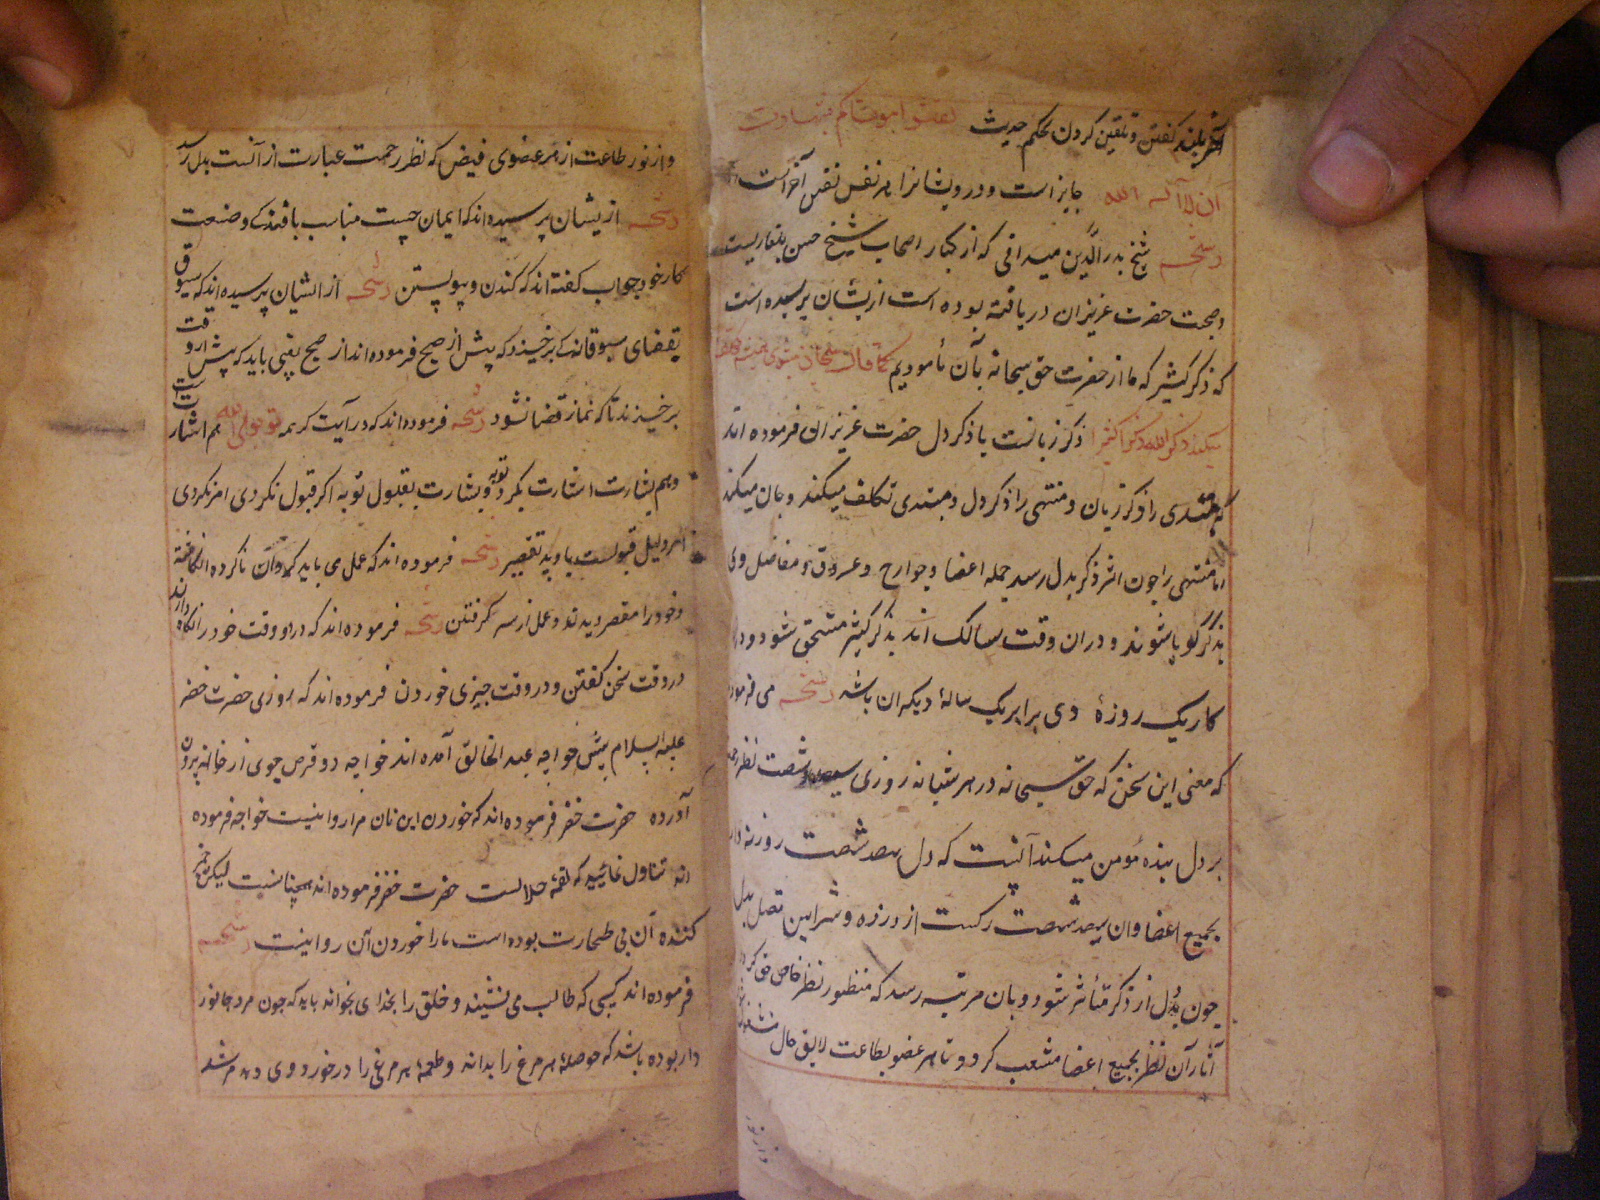 آخر بلند گفتن و تلقین کردن بحکم حدیث لقنوا موتاکم شهادت
ان لا اله الا الله جایز است و درویشانرا هر نفس نفس آخر است
رشحه شیخ بدر الدین میدانی که از کبار اصحاب شیخ حسن بلغاریست
و صحبت حضرت عزیزان دریافته بوده است از یشان پرسیده است
که ذکر کثیر که ما از حضرت حق سبحانه بآن مأموریم کما قال
ذکر زبانست یا ذکر دل حضرت عزیزان فرموده اند
که مبتدی را ذکر زبان و منتهی را ذکر دل و مبتدی تکلف میکند و جان میکند
اما منتهی را چون اثر ذکر بدل رسد جمله اعضا و جوارح و عروق و مفاصل وی
بذکر گویا شوند و دران وقت سالک اند بذکر کثیر متحقق شود و در
کار یک روزهٔ وی برابر یک سالهٔ دیگران باشد رشحه می فرموده
که معنی این سخن که حق سبحانه در هر شبانه روزی سیصد و شصت نظر رحمت
بر دل بنده مؤمن میکند آنست که دل سیصد شصت روزنه دارد
بجمیع اعضا و ان سیصد شصت رگست از ورزه و شرایین متصل بدل
چون بدل از ذکر متأثر شود و بان مرتبه رسد که منظور نظر خاص حق گردد
آثار آن نظر بجمیع اعضا منشعب گردد تا هر عضو بطاعت لایق حال مشغول
و از نور
و از نور طاعت از هر عضوی فیض که نظر رحمت عبارت از آنست بدل رسد
رشحه از یشان پرسیده اند که ایمان چیست مناسب بافندگی و صنعت
کار خود جواب گفته اند که کندن و پیوستن رشحه از ایشان پرسیده اند که مسبوق
بقضای مسبوقانه کی برخیزد که پیش از صبح فرموده اند از صبح یعنی باید که پیش از وقت
برخیزند تا که نماز قضا نشود رشحه فرموده اند که در آیت کریمه توبوا الی الله هم اشارت است
و هم بشارت اشارت بکرد توبه و بشارت بقبول توبه اگر قبول نکردی امر نکردی
امر دلیل قبولست با دید تقصیر رشحه فرموده اند که عمل می باید کرد و آن ناکرده انگاشته
و خود را مقصر دیدند و عمل از سر گرفتن رشحه فرموده اند که در دو وقت خود را نگاه دارند
در وقت سخن گفتن و در وقت چیزی خوردن فرموده اند که روزی حضرت خضر
علیه السلام پیش خواجه عبد الخالق آمده اند خواجه دو قرص جوی از خانه بیرون
آورده حضرت خضر فرموده اند که خوردن این نان مرا روا نیست خواجه فرموده
اند تناول نمائید که لقمهٔ حلالست حضرت خضر فرموده اند همچنانست لیکن خمیر
کننده آن بی طهارت بوده است ما را خوردن آن روا نیست رشحه
فرموده اند کسی که طالب می نشیند و خلق را بخدای بخواند باید که چون مرد جانور
دار بوده باشد که حوصلهٔ هر مرغ را بداند و طعمهٔ هر مرغی را درخورد وی دهد مرشد